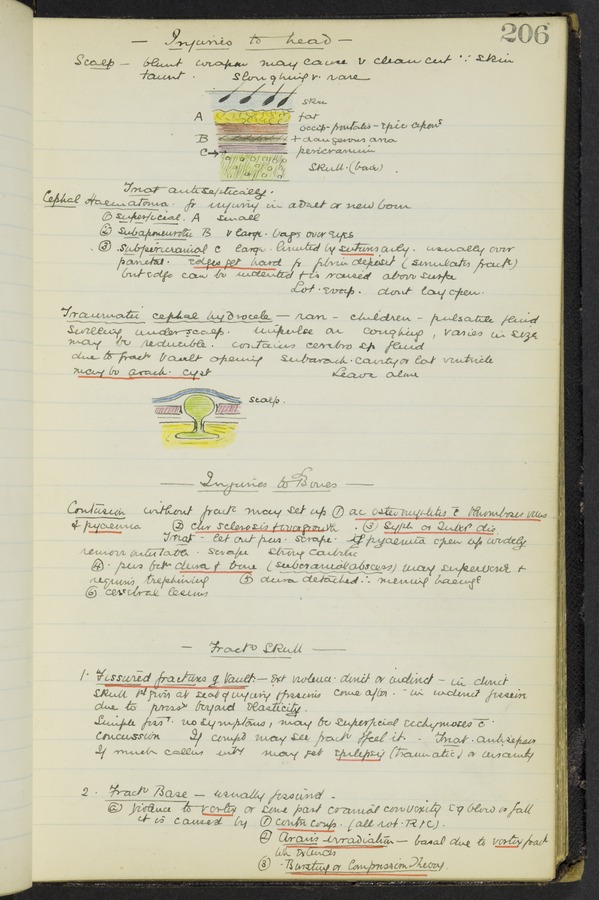 206
— Injuries to head —
Scalp — blunt weapon may cause v clean cut ∵ skin
taunt. Sloughing v. rare
skin
A fat
occip-frontalis - epic apon
B + dangerous area
C→ pericranium
Skull. (bone)
Treat antiseptically.
Cephal Haematoma. fr injury in adult or new born
① superficial. A small
② Subaponeurotic B v large. bags over eyes
③ Subpericranial C large. limited by sutures only. usually over
parietal. Edges get hard fr fibrin deposit (simulates fract)
but edge can be indented + is raised above surface
Lot. evap. dont lay open.
Traumatic cephal hydrocele — rare - children - pulsatile fluid
swelling under scalp. impulse on coughing, varies in size
may be reducible. contains cerebro sp fluid
due to fract vault opening subarach. cavity or lat ventricle
may be arach. cyst Leave alone
scalp.
— Injuries to Bones —
Contusion without fract may set up ① ac osteomyelitis c̄ thrombosis
& pyaemia ② chr sclerosis + overgrowth. ③ Syph or Tuberc dis.
Treat - let out pus. scrape. If pyaemia open up widely
remove outer table. scrape strong carbolic
④. pus betw dura & bone (subcranial abscess) may supervene +
requires trephining ⑤ dura detached ∴ mening haemge
⑥ cerebral lesions
— Fract Skull —
1. Fissured fractures of Vault — ext violence direct or indirect — in direct
skull 1st gives at seat of injury fissures come after. - in indirect fissure
due to press beyond elasticity.
Simple fis. no symptoms, may be superficial ecchymoses c̄
concussion If compd may see fract & feel it. Treat. antisepsis
If much callus may get epilepsy (traumatic) or insanity
2. Fract Base — usually fissured -
Violence to vertex or some part cranial convexity eg blow or fall
it is caused by ① contre coup. (all rot. R.I.C.).
② Aran's irradiation — basal due to vertex fract
wh extends
③ Bursting or Compression Theory